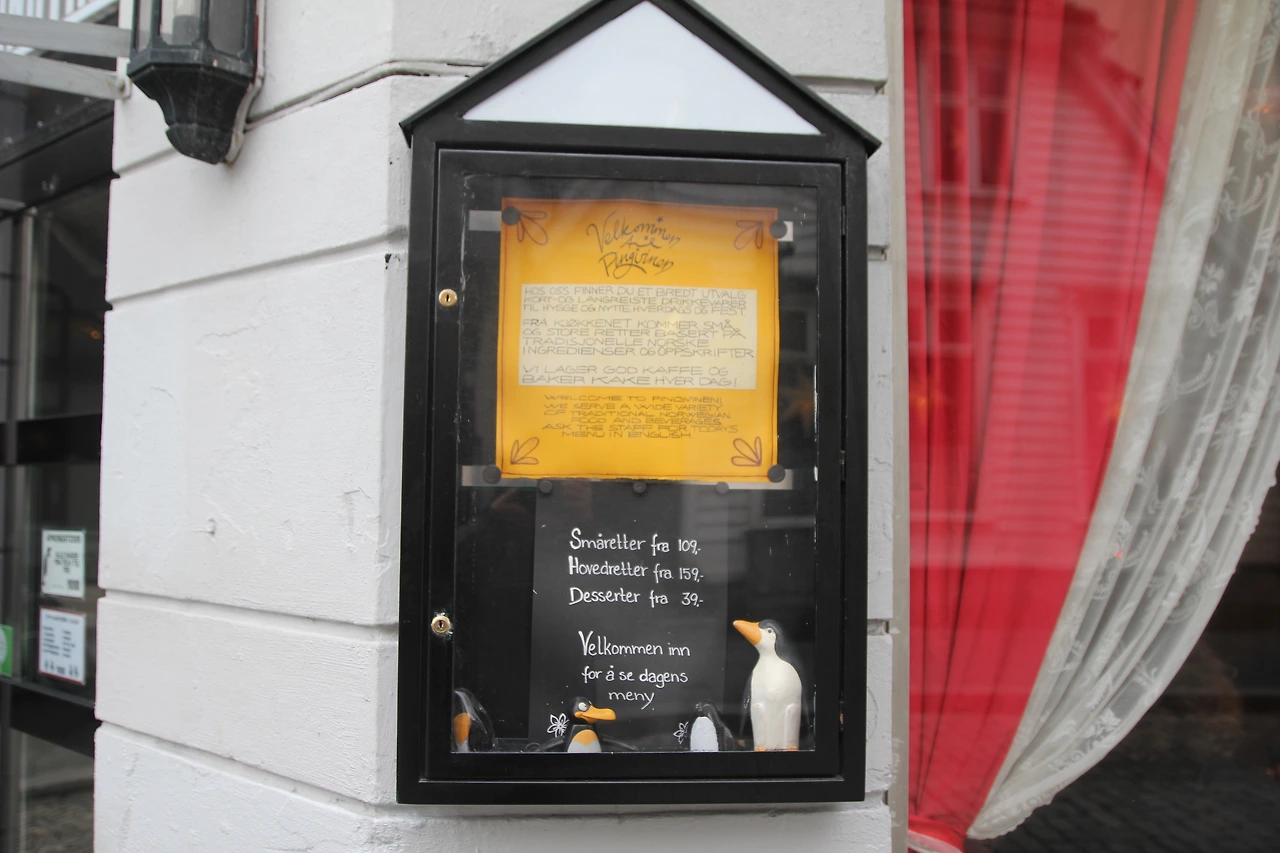 Velkommen
til
Pingvinen
HOS OSS FINNER DU ET BREDT UTVALG
KORT- OG LANGREISTE DRIKKEVARER
TIL HYGGE OG NYTTE, HVERDAGS OG FEST.
FRA KJØKKENET KOMMER SMÅ
OG STORE RETTER BASERT PÅ
TRADISJONELLE NORSKE
INGREDIENSER OG OPPSKRIFTER
VI LAGER GOD KAFFE OG
BAKER KAKE HVER DAG!
WELCOME TO PINGVINEN!
WE SERVE A WIDE VARIETY
OF TRADITIONAL NORWEGIAN
FOOD AND BEVERAGES.
ASK THE STAFF FOR TODAYS
MENU IN ENGLISH.
Småretter fra 109,-
Hovedretter fra 159,-
Desserter fra 39,-
Velkommen inn
for å se dagens
meny